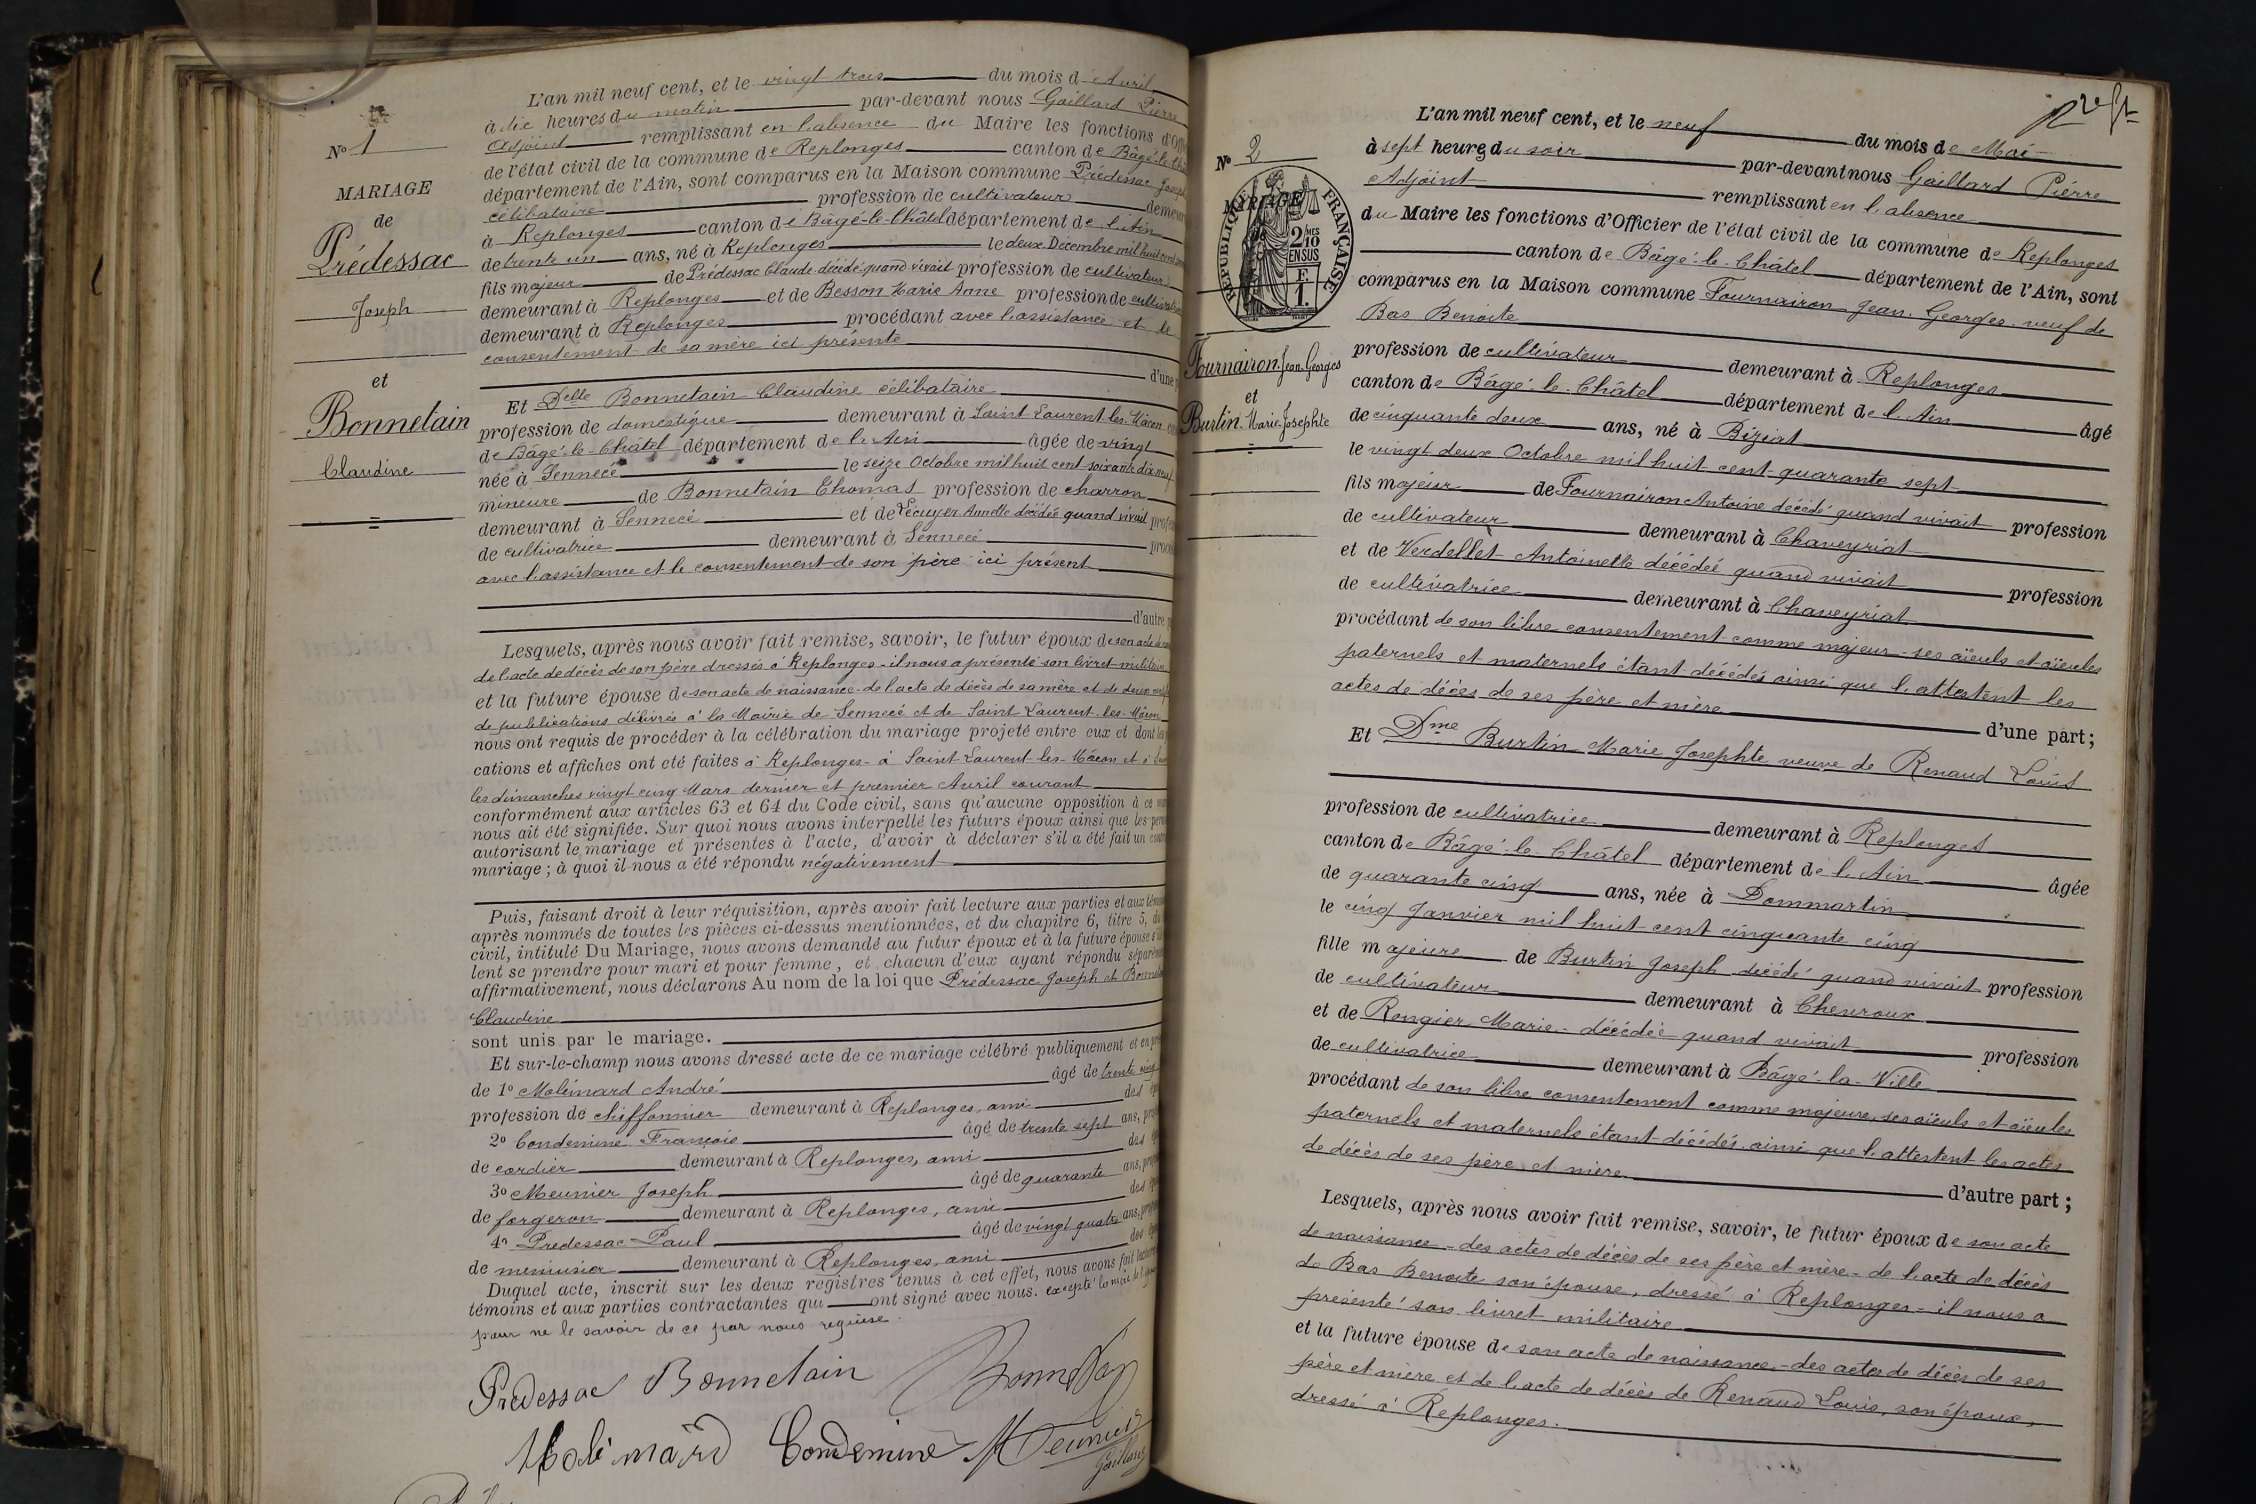 N° 1
MARIAGE
de
Prédessac
Joseph
et
Bonnetain
Claudine
L'an mil neuf cent, et le vingt trois du mois d'Avril
à dix heures du matin par-devant nous Gaillard Pierre
Adjoint remplissant en l'absence du Maire les fonctions d'Offi
de l'état civil de la commune de Replonges canton de Bâgé-le-Châ
département de l'Ain, sont comparus en la Maison commune Prédessac Joseph
célibataire profession de cultivateur demeu
à Replonges canton de Bâgé-le-Châtel département de l'Ain
de trente un ans, né à Replonges le deux Décembre mil huit cent
fils majeur de Prédessac Claude décédé quand vivait profession de cultivateur
demeurant à Replonges et de Besson Marie Anne profession de cultivatrice
demeurant à Replonges procédant avec l'assistance et le
consentement de sa mère ici présente
d'une
Et Delle Bonnetain Claudine célibataire
profession de domestique demeurant à Saint Laurent-les-Mâcon
de Bâgé-le-Châtel département de l'Ain âgée de vingt
née à Sennecé le seize Octobre mil huit cent soixante dix neuf
mineure de Bonnetain Thomas profession de charron
demeurant à Sennecé et de Lécuyer Annette décédée quand vivait
de cultivatrice demeurant à Sennecé
avec l'assistance et le consentement de son père ici présent
d'autre
Lesquels, après nous avoir fait remise, savoir, le futur époux de son acte de
de l'acte de décès de son père dressés à Replonges - il nous a présenté son livret militaire
et la future épouse de son acte de naissance - de l'acte de décès de sa mère et de deux
de publications délivrés à la Mairie de Sennecé et de Saint Laurent-les-Mâcon
nous ont requis de procéder à la célébration du mariage projeté entre eux et dont les
cations et affiches ont été faites à Replonges - à Saint Laurent-les-Mâcon et à
les dimanches vingt cinq Mars dernier et premier Avril courant
conformément aux articles 63 et 64 du Code civil, sans qu'aucune opposition à ce
nous ait été signifiée. Sur quoi nous avons interpellé les futurs époux ainsi que les
autorisant le mariage et présentes à l'acte, d'avoir à déclarer s'il a été fait un
mariage ; à quoi il nous a été répondu négativement
Puis, faisant droit à leur réquisition, après avoir fait lecture aux parties et aux
après nommés de toutes les pièces ci-dessus mentionnées, et du chapitre 6, titre 5, du
civil, intitulé Du Mariage, nous avons demandé au futur époux et à la future épouse
lent se prendre pour mari et pour femme, et chacun d'eux ayant répondu séparé
affirmativement, nous déclarons Au nom de la loi que Prédessac Joseph et Bonnetain
Claudine
sont unis par le mariage.
Et sur-le-champ nous avons dressé acte de ce mariage célébré publiquement et en
de 1° Molimard André âgé de trente cinq
profession de chiffonnier demeurant à Replonges, ami des
2° Condemine François âgé de trente sept ans,
de cordier demeurant à Replonges, ami des
3° Meunier Joseph âgé de quarante ans,
de forgeron demeurant à Replonges, ami des
4° Prédessac Paul âgé de vingt quatre ans,
de menuisier demeurant à Replonges, ami des
Duquel acte, inscrit sur les deux registres tenus à cet effet, nous avons fait lecture
témoins et aux parties contractantes qui ont signé avec nous. excepté la mère de
pour ne le savoir de ce par nous requise.
Prédessac Bonnetain Bonnetain
Molimard Condemine Meunier
Gaillard
N° 2
MARIAGE
RÉPUBLIQUE FRANÇAISE
2/10 MES
EN SUS
F
1.
Fournairon Jean Georges
et
Burtin Marie Josephte
L'an mil neuf cent, et le neuf du mois de Mai
à sept heures du soir par-devant nous Gaillard Pierre
Adjoint remplissant en l'absence
du Maire les fonctions d'Officier de l'état civil de la commune de Replonges
canton de Bâgé-le-Châtel département de l'Ain, sont
comparus en la Maison commune Fournairon Jean Georges veuf de
Bas Benoite
profession de cultivateur demeurant à Replonges
canton de Bâgé-le-Châtel département de l'Ain âgé
de cinquante deux ans, né à Biziat
le vingt deux Octobre mil huit cent quarante sept
fils majeur de Fournairon Antoine décédé quand vivait profession
de cultivateur demeurant à Chaveyriat
et de Verdellet Antoinette décédée quand vivait profession
de cultivatrice demeurant à Chaveyriat
procédant de son libre consentement comme majeur - ses aïeuls et aïeules
paternels et maternels étant décédés ainsi que l'attestent les
actes de décès de ses père et mère d'une part ;
Et Dme Burtin Marie Josephte veuve de Renaud Louis
profession de cultivatrice demeurant à Replonges
canton de Bâgé-le-Châtel département de l'Ain âgée
de quarante cinq ans, née à Dommartin
le cinq Janvier mil huit cent cinquante cinq
fille majeure de Burtin Joseph décédé quand vivait profession
de cultivateur demeurant à Chevroux
et de Rongier Marie - décédée quand vivait profession
de cultivatrice demeurant à Bâgé-la-Ville
procédant de son libre consentement comme majeure, ses aïeuls et aïeules
paternels et maternels étant décédés ainsi que l'attestent les actes
de décès de ses père et mère d'autre part ;
Lesquels, après nous avoir fait remise, savoir, le futur époux de son acte
de naissance - des actes de décès de ses père et mère - de l'acte de décès
de Bas Benoite son épouse, dressé à Replonges - il nous a
présenté son livret militaire
et la future épouse de son acte de naissance - des actes de décès de ses
père et mère et de l'acte de décès de Renaud Louis, son époux,
dressé à Replonges.